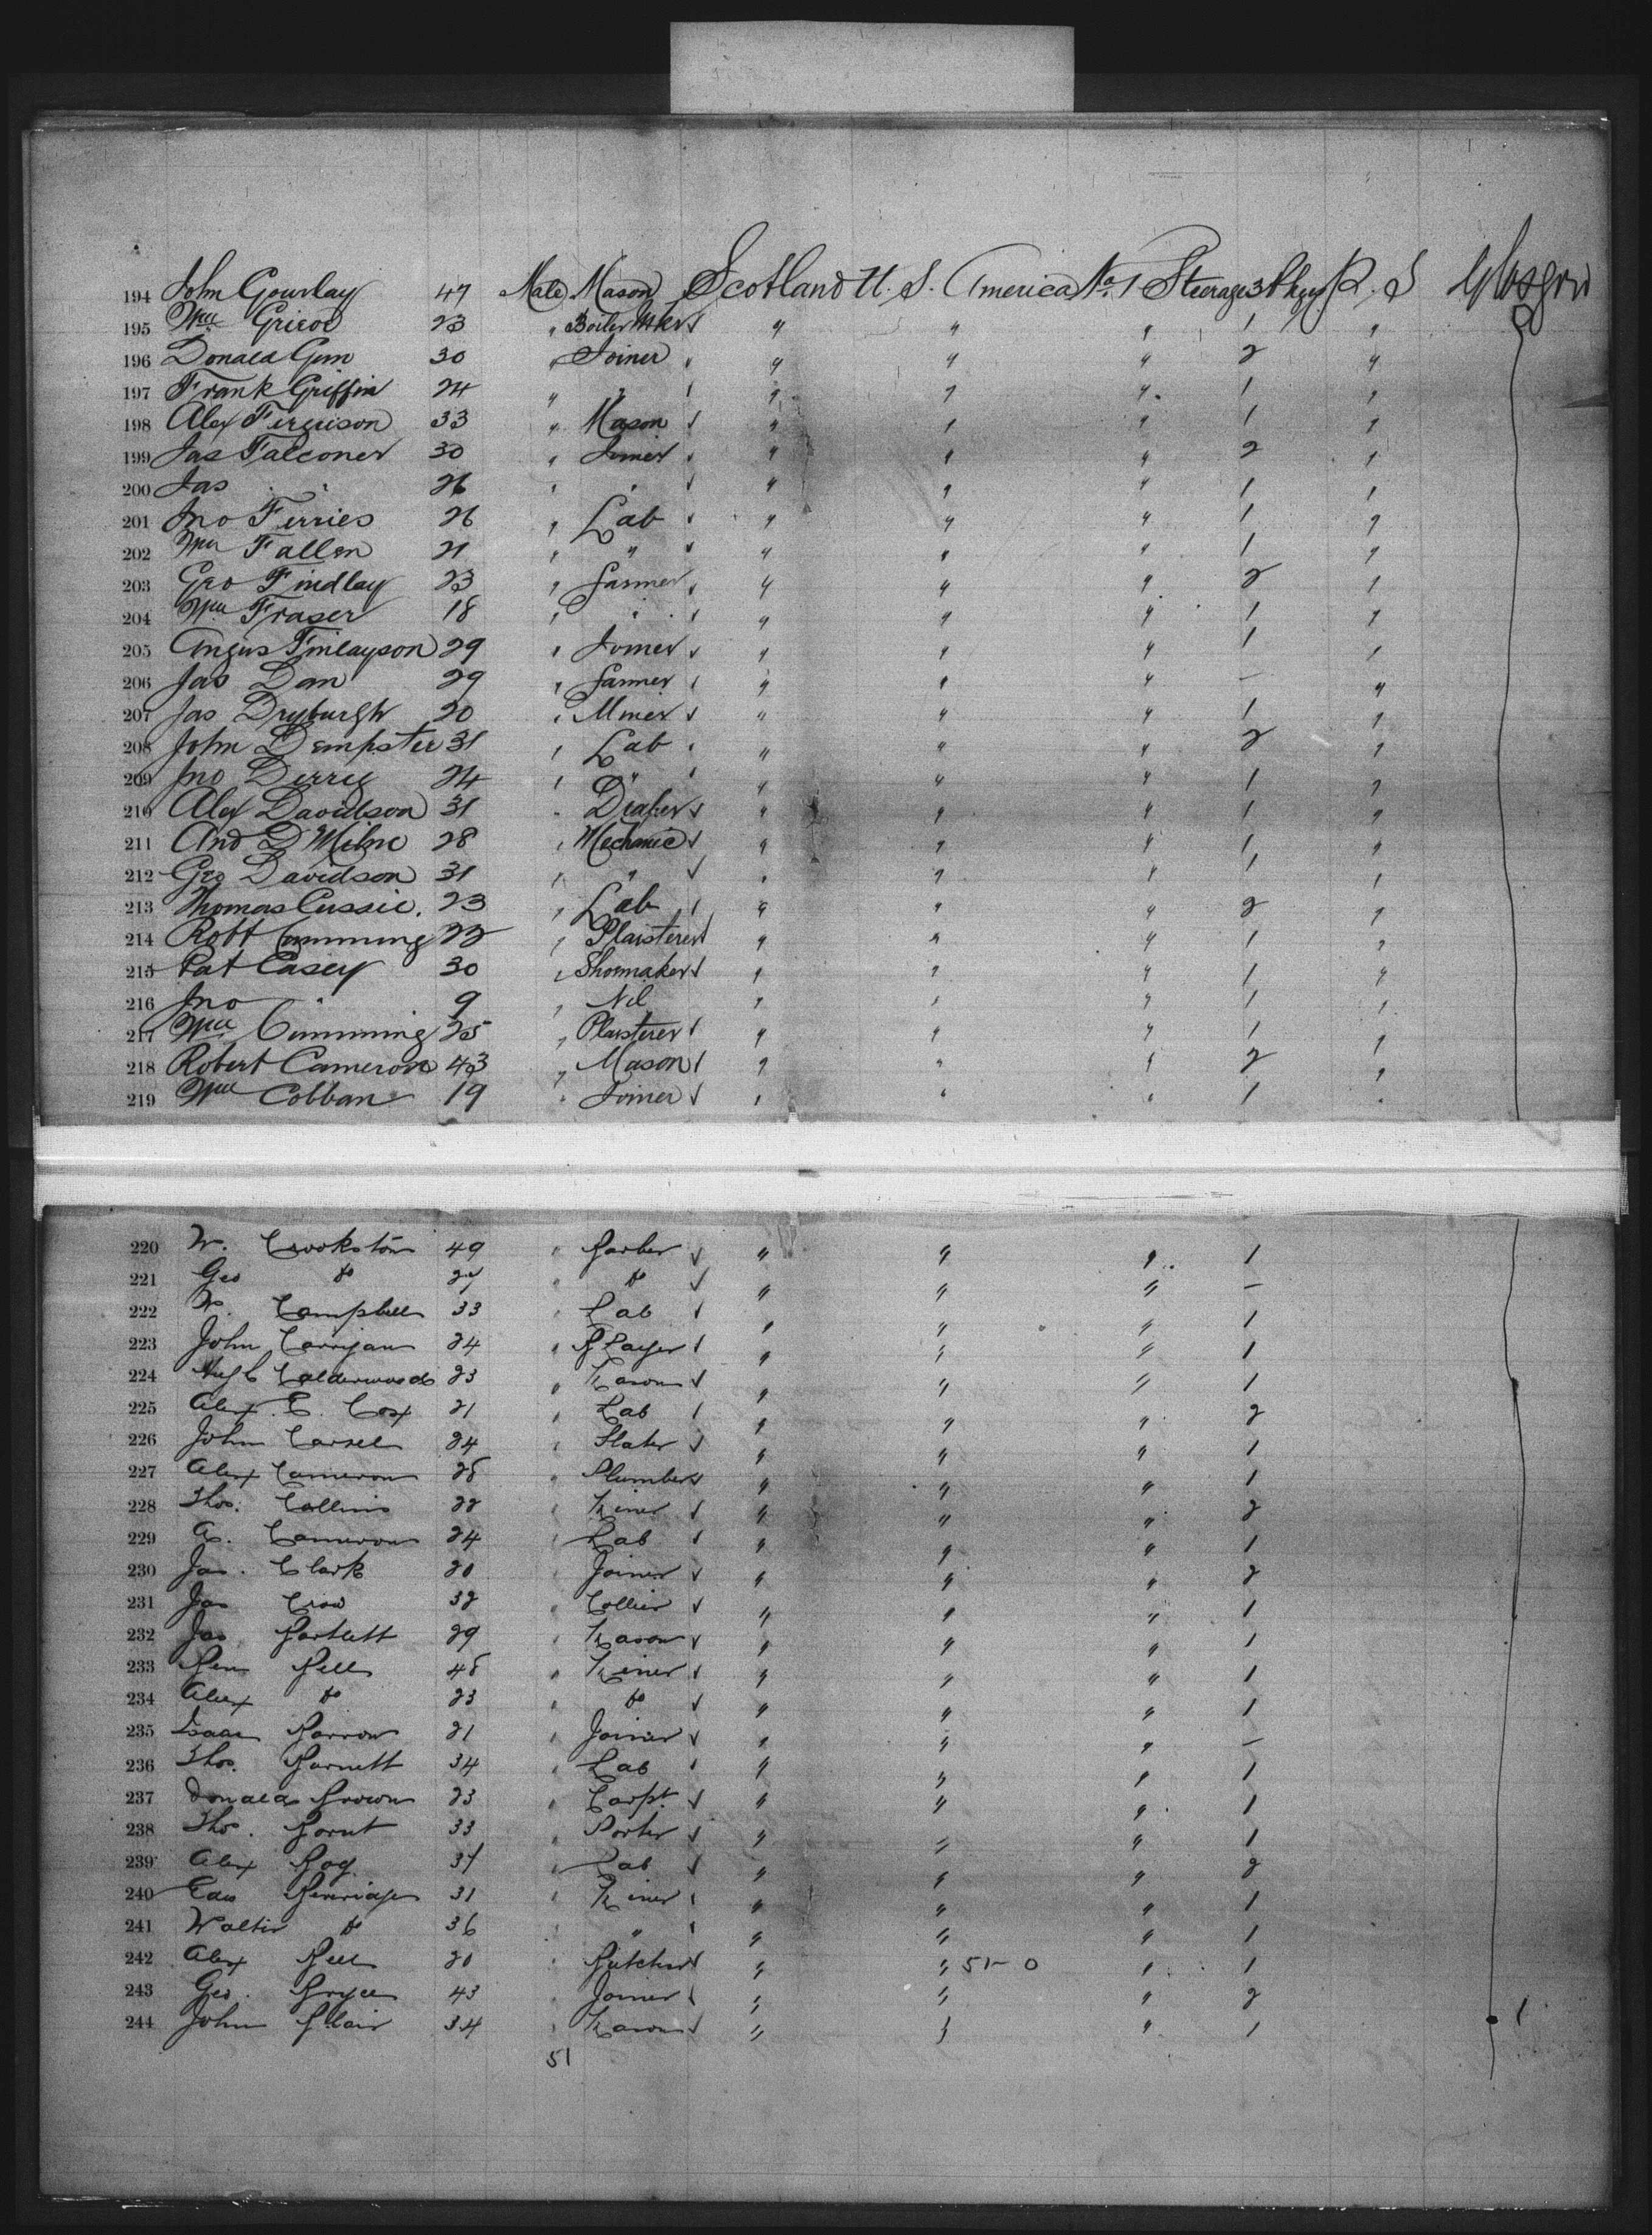 194 John Gourlay 47 Male Mason Scotland U. S. America No. 1 Steerage 3 Pkgs P. S Glasgow
195 Wm Grieve 23 " Boiler Mkr " " " 1 "
196 Donald Gunn 30 " Joiner " " " 2 "
197 Frank Griffin 24 " " " " " 1 "
198 Alex Ferguson 33 " Mason " " " 1 "
199 Jas Falconer 30 " Joiner " " " 2 "
200 Jas " 26 " " " " " 1 "
201 Jno Ferries 26 " Lab " " " 1 "
202 Wm Fallon 21 " " " " " 1 "
203 Geo Findlay 23 " Farmer " " " 2 "
204 Wm Fraser 18 " " " " " 1 "
205 Angus Finlayson 29 " Joiner " " " 1 "
206 Jas Dan 29 " Farmer " " " — "
207 Jas Dryburgh 20 " Miner " " " 1 "
208 John Dempster 31 " Lab " " " 2 "
209 Jno Derry 24 " " " " " 1 "
210 Alex Davidson 31 " Draper " " " 1 "
211 And D Milne 28 " Mechanic " " " 1 "
212 Geo Davidson 31 " " " " " 1 "
213 Thomas Cussie 23 " Lab " " " 2 "
214 Robt Cumming 22 " Plaisterer " " " 1 "
215 Pat Casey 30 " Shoemaker " " " 1 "
216 Jno " 9 " Nil " " " 1 "
217 Wm Cumming 25 " Plaisterer " " " 1 "
218 Robert Cameron 43 " Mason " " " 2 "
219 Wm Cobban 19 " Joiner " " " 1 "
220 W. Crookston 49 " Barber " " " 1
221 Geo Do 27 " Do " " " —
222 W. Campbell 33 " Lab " " " 1
223 John Carrigan 24 " B Layer " " " 1
224 Hugh Calderwood 23 " Mason " " " 1
225 Alex. E. Cox 21 " Lab " " " 2
226 John Carsell 24 " Slater " " " 1
227 Alex Cameron 28 " Plumber " " " 1
228 Thos. Collins 22 " Miner " " " 2
229 A. Cameron 24 " Lab " " " 1
230 Jas. Clark 20 " Joiner " " " 2
231 Jas Crow 32 " Collier " " " 1
232 Jas Bartlett 29 " Mason " " " 1
233 Ben Bell 48 " Miner " " " 1
234 Alex Do 23 " Do " " " 1
235 Isaac Barron 21 " Joiner " " " —
236 Thos. Barnett 34 " Lab " " " 1
237 Donald Brown 23 " Carpt. " " " 1
238 Thos. 33 " Porter " " " 1
239 Alex 37 " Lab " " " 2
240 Edw 31 " Miner " " " 1
241 Walter Do 36 " " " " " 1
242 Alex Bell 20 " Butcher " " 51-0 " 1
243 Geo. Bryce 43 " Joiner " " " 2
244 John Blair 34 " Mason " " " 1 1
51